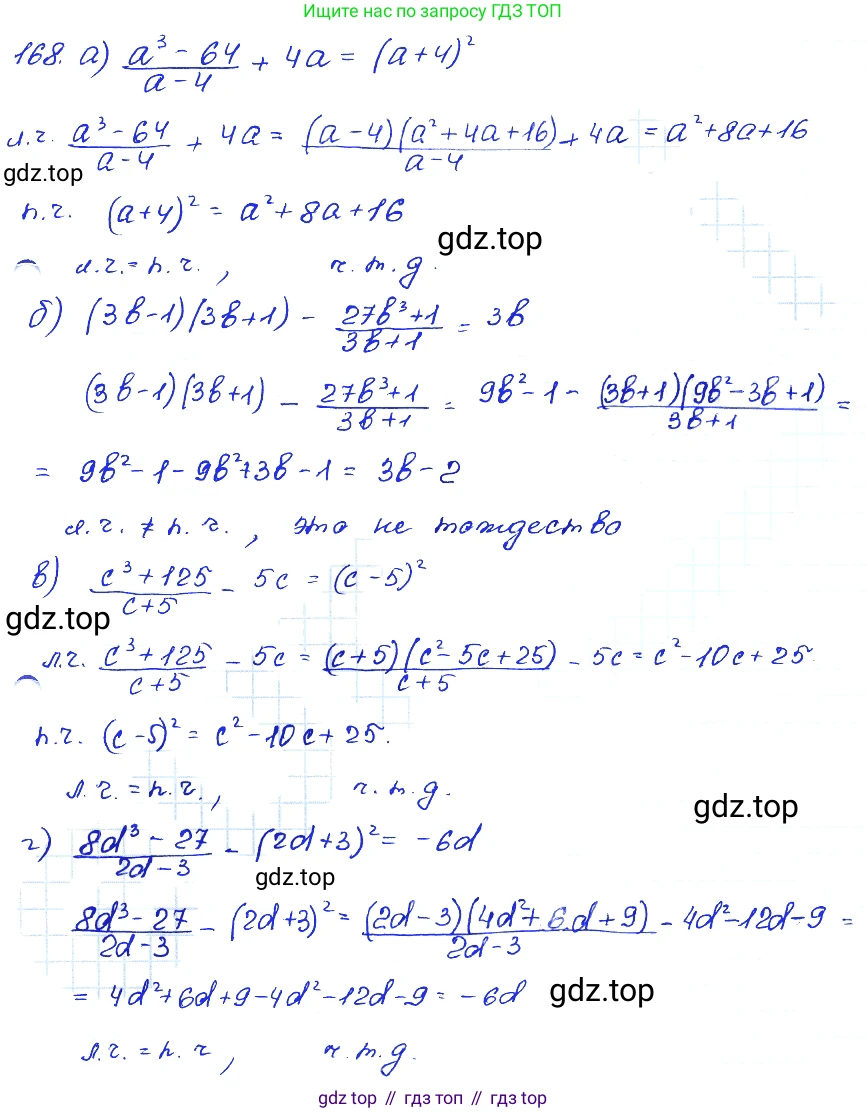 Найти нас по запросу ГДЗ ТОП
168. а) (a³ - 64)/(a - 4) + 4a = (a+4)²
л.ч. (a³ - 64)/(a - 4) + 4a = ((a - 4)(a² + 4a + 16))/(a - 4) + 4a = a² + 8a + 16
gdz.top
п.ч. (a+4)² = a² + 8a + 16
gdz.top
л.ч. = п.ч., ч.т.д.
б) (3b-1)(3b+1) - (27b³+1)/(3b+1) = 3b
(3b-1)(3b+1) - (27b³+1)/(3b+1) = 9b² - 1 - ((3b+1)(9b² - 3b + 1))/(3b+1) =
= 9b² - 1 - 9b² + 3b - 1 = 3b - 2
л.ч. ≠ п.ч., это не тождество
в) (c³ + 125)/(c+5) - 5c = (c - 5)²
gdz.top
л.ч. (c³ + 125)/(c+5) - 5c = ((c+5)(c² - 5c + 25))/(c+5) - 5c = c² - 10c + 25.
п.ч. (c - 5)² = c² - 10c + 25.
л.ч. = п.ч., ч.т.д.
gdz.top
г) (8d³ - 27)/(2d - 3) - (2d+3)² = -6d
gdz.top
(8d³ - 27)/(2d - 3) - (2d+3)² = ((2d - 3)(4d² + 6d + 9))/(2d - 3) - 4d² - 12d - 9 =
= 4d² + 6d + 9 - 4d² - 12d - 9 = -6d
gdz.top
л.ч. = п.ч, ч.т.д.
gdz top // гдз топ // gdz top